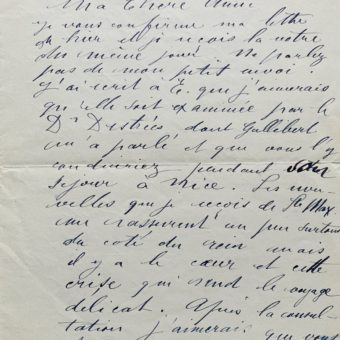 Ma chère Amie
je vous confirme ma lettre
d'hier et je reçois la vôtre
du même jour. Ne parlez
pas de mon petit envoi.
J'ai écrit à T. que j'aimerais
qu'elle soit examinée par le
Dr dont
m'a parlé et que vous l'y
conduiriez pendant son
séjour à Nice. Les nou-
velles que je reçois de Ste Max
me rassurent un peu surtout
du côté du rein mais
il y a le cœur et cette
crise qui rend le voyage
délicat. Après la consul-
tation j'aimerais que vous